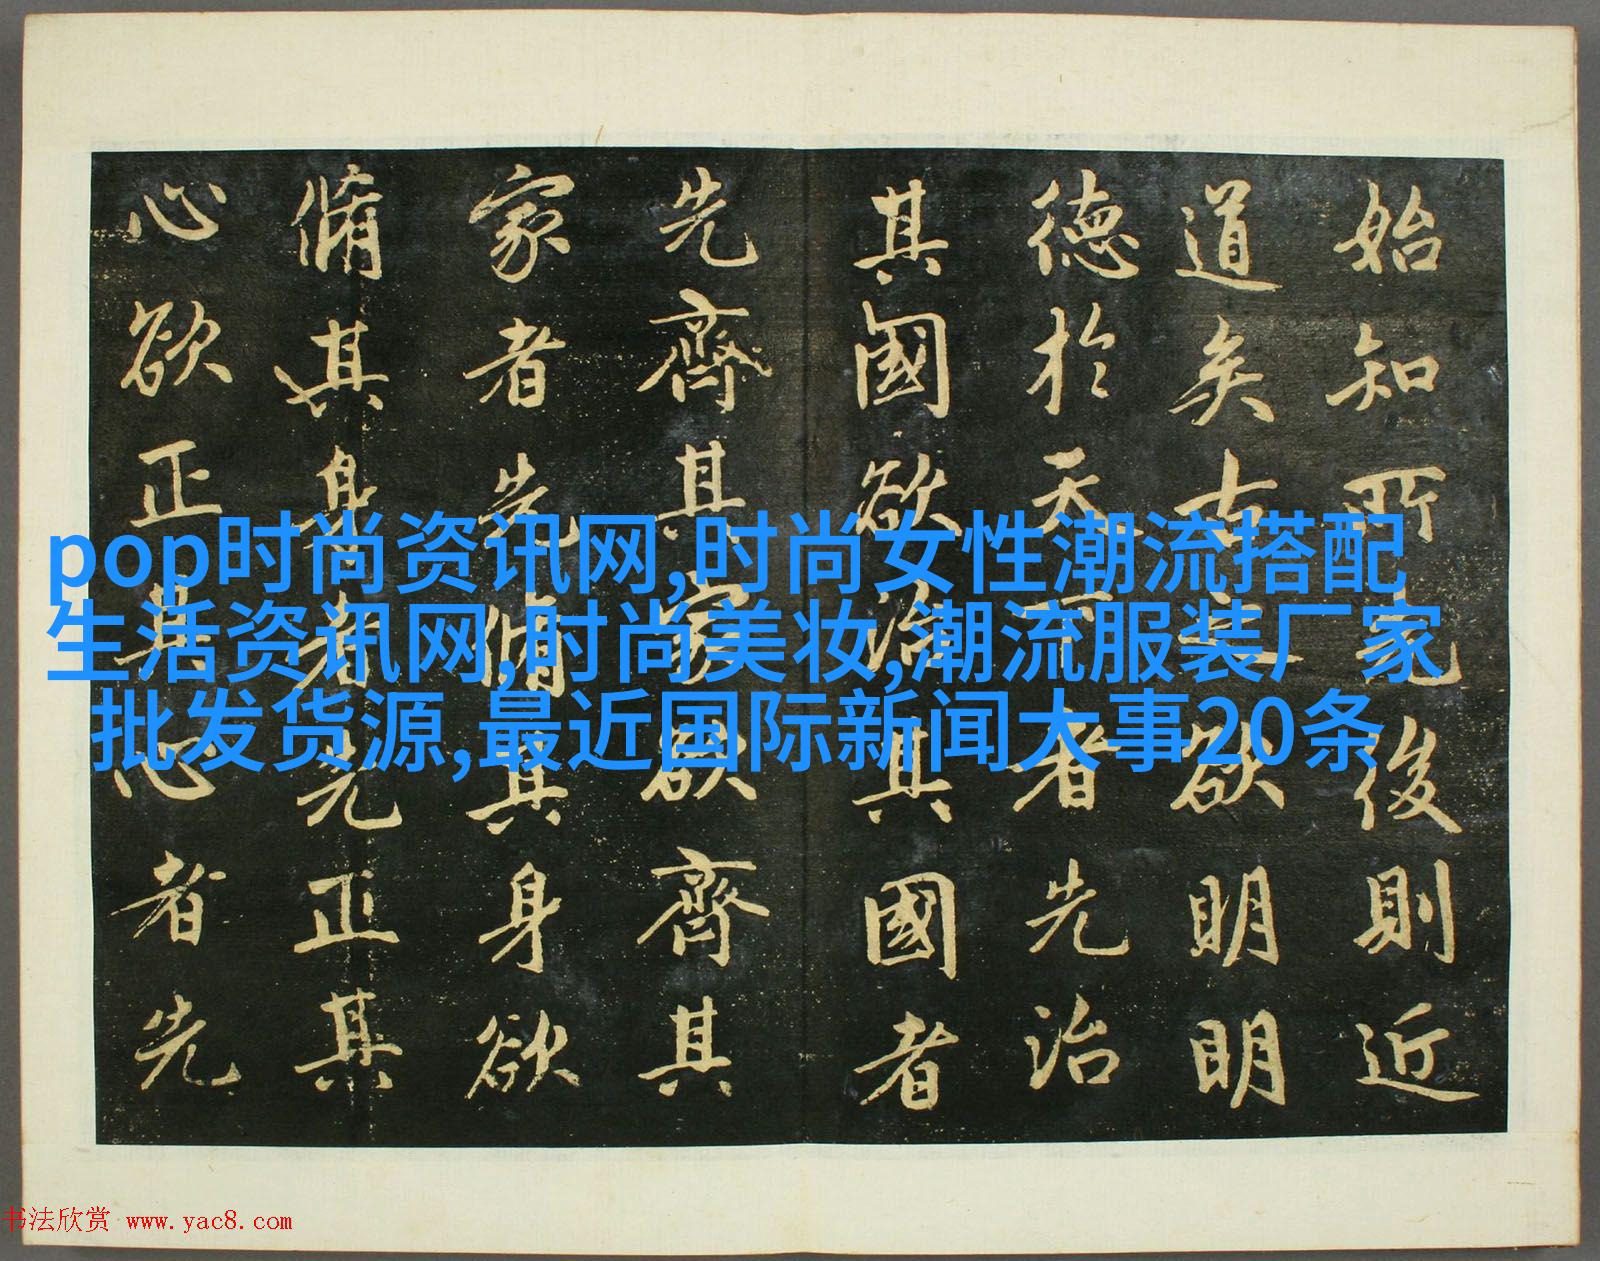 始知所先後則近
道矣古之欲明明
德於天下者先治
其國欲治其國者
先齊其家欲齊其
家者先脩其身欲
脩其身者先正其
心欲正其心者先
pop时尚资讯网,时尚女性潮流搭配
生活资讯网,时尚美妆,潮流服装厂家
批发货源,最近国际新闻大事20条
书法欣赏 www.yac8.com